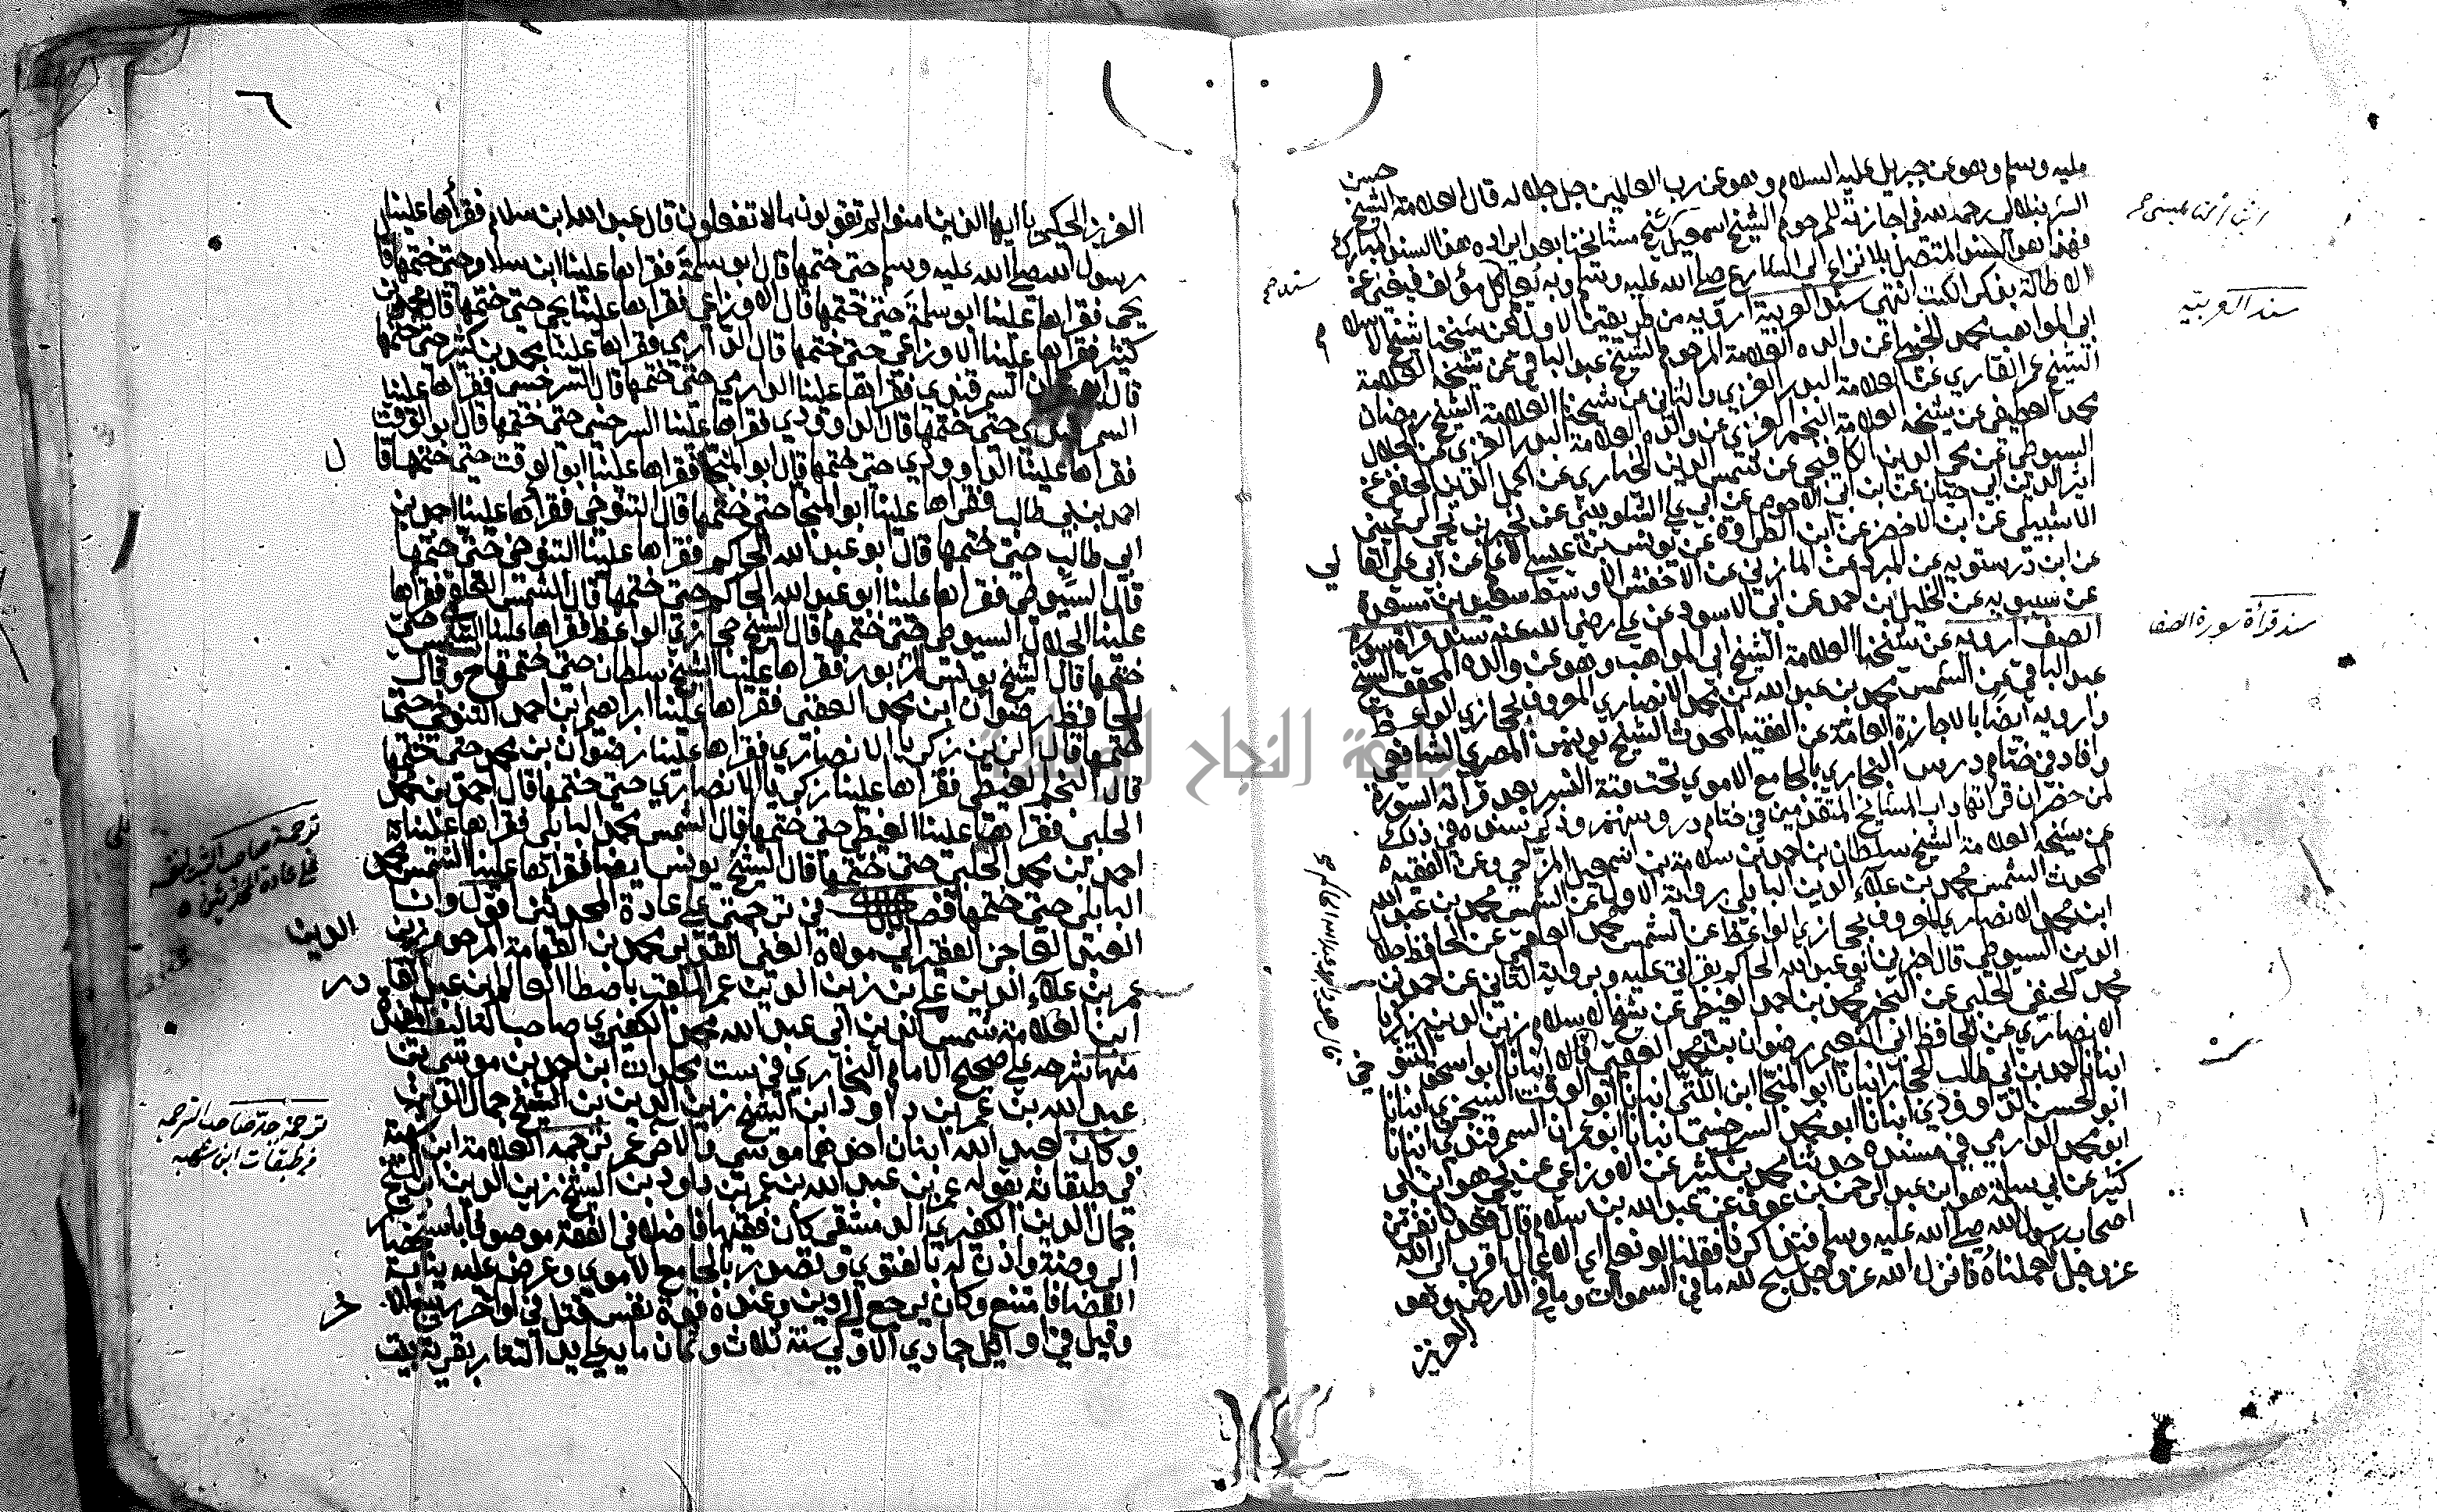 عليه وسلم وهو عن جبريل عليه السلام وهو عن رب العالمين جل جلاله قال العلامة الشيخ حسن
الشرنبلالي رحمه الله في اجازته للمرحوم الشيخ اسمعيل شيخ مشائخنا بعد ايراده هذا السند المبارك
فهذا هو السند المتصل بلا نزاع الى الشارع صلى الله عليه وسلم وبه يعلم كل مؤلف فيغني عن
الاطالة بذكر الكتب انتهى سند العربية ارويه من طريقين الاول عن شيخنا شيخ الاسلام
ابي المواهب محمد الحنبلي عن والده العلامة المرحوم الشيخ عبد الباقي عن شيخه العلامة
الشيخ عمر القاري عن العلامة البدر الغزي والثاني عن شيخنا العلامة الشيخ رمضان
محمد العطيفي عن شيخه العلامة النجم الغزي عن والده العلامة البدر الغزي عن الجلال
السيوطي عن محي الدين الكافيجي عن شمس الدين عن اكمل الدين الحنفي عن
اثير الدين ابي حيان عن ابن ابي الاحوص عن ابي علي الشلوبيني عن
الاشبيلي عن ابن الاخضر عن ابن الطراوة عن يونس بن عيسى الاعلم عن ابي علي القالي
عن ابن درستويه عن المبرد عن المازني عن الاخفش الاوسط سعيد بن مسعدة
عن سيبويه عن الخليل بن احمد عن ابي الاسود عن علي رضي الله عنه سند قراءة سورة
الصف ارويه عن شيخنا العلامة الشيخ ابي المواهب وهو عن والده المحقق الشيخ
عبد الباقي عن الشمس محمد بن عبد الله بن محمد الانصاري المعروف بحجازي الواعظ ح
وارويه ايضا بالاجازة العامة عن الفقيه المحدث الشيخ يونس المصري الشافعي
وافاد في ختام درس البخاري بالجامع الاموي تحت قبة النسر بعد قراءة السورة
لمن حضر ان قراءتها داب المشايخ المتقدمين في ختام دروسهم وذكر سنده في ذلك
عن شيخه العلامة الشيخ سلطان بن احمد بن سلامة بن اسمعيل المزاحي وعن الفقيه
المحدث الشمس محمد بن علاء الدين البابلي برواية الاول عن الشمس محمد بن عبد الله
ابن محمد الانصاري المعروف بحجازي الواعظ عن الشمس محمد العلقمي عن الحافظ جلال
الدين السيوطي قال اخبرني ابو عبد الله الحاكم بقراءتي عليه وبرواية الثاني عن احمد بن
محمد الحنفي الحلبي عن النجم محمد بن احمد الغيطي عن شيخ الاسلام زين الدين زكريا
الانصاري عن الحافظ ابي النعيم رضوان بن محمد العقبي قالا انبانا ابو اسحق التنوخي
انبانا احمد بن ابي طالب الحجار انبانا ابو المنجا ابن اللتي انبانا ابو الوقت السجزي انبانا
ابو الحسن الداوودي انبانا ابو محمد السرخسي انبانا ابو عمران السمرقندي انبانا
ابو محمد الدارمي في مسنده حدثنا محمد بن كثير عن الاوزاعي عن يحيى هو ابن ابي
كثير عن ابي سلمة هو ابن عبد الرحمن بن عوف عن عبد الله بن سلام قال قعدنا نفر من
اصحاب رسول الله صلى الله عليه وسلم فتذاكرنا فقلنا لو نعلم اي الاعمال اقرب الى الله
عز وجل لعملناه فانزل الله عز وجل سبح لله ما في السموات وما في الارض وهو
العزيز
سند العربيه
سند قرأة سورة الصف
٦
العزيز الحكيم يا ايها الذين امنوا لم تقولون ما لا تفعلون قال عبد الله ابن سلام فقراها علينا
رسول الله صلى الله عليه وسلم حتى ختمها قال ابو سلمة فقراها علينا ابن سلام حتى ختمها قال
يحيى فقراها علينا ابو سلمة حتى ختمها قال الاوزاعي فقراها علينا يحيى حتى ختمها قال محمد بن
كثير فقراها علينا الاوزاعي حتى ختمها قال الدارمي فقراها علينا محمد بن كثير حتى ختمها
قال السمرقندي فقراها علينا الدارمي حتى ختمها قال السرخسي فقراها علينا
السمرقندي حتى ختمها قال الداوودي فقراها علينا السرخسي حتى ختمها قال ابو الوقت
فقراها علينا الداوودي حتى ختمها قال ابو المنجا فقراها علينا ابو الوقت حتى ختمها قال
احمد بن ابي طالب فقراها علينا ابو المنجا حتى ختمها قال التنوخي فقراها علينا احمد بن
ابي طالب حتى ختمها قال ابو عبد الله الحاكم فقراها علينا التنوخي حتى ختمها
قال السيوطي فقراها علينا ابو عبد الله الحاكم حتى ختمها قال الشمس العلقمي فقراها
علينا الجلال السيوطي حتى ختمها قال الشيخ حجازي الواعظ فقراها علينا الشمس حتى
ختمها قال الشيخ يونس المزبور فقراها علينا الشيخ سلطان حتى ختمها ح وقال
الحافظ رضوان ابن محمد العقبي فقراها علينا ابراهيم ابن احمد التنوخي حتى
ختمها قال الزين زكريا الانصاري فقراها علينا رضوان بن محمد حتى ختمها
قال النجم الغيطي فقراها علينا زكريا الانصاري حتى ختمها قال احمد بن محمد
الحلبي فقراها علينا الغيطي حتى ختمها قال الشمس محمد البابلي فقراها علينا
احمد بن محمد الحلبي حتى ختمها قال الشيخ يونس ايضا فقراها علينا الشمس محمد
البابلي حتى ختمها فصل في ترجمتي على عادة المحدثين اقول وانا
العبد العاجز الفقير الى مولاه الغني القدير محمد بن العلامة المرحوم زين الدين
عمر بن علاء الدين علي بن زين الدين عمر الملقب باصطا العالم ابن عبد القادر
ابن العلامة شمس الدين ابي عبد الله محمد الكفيري صاحب التاليف العديدة
منها شرحه على صحيح الامام البخاري في ست مجلدات ابن احمد بن موسى بن
عبد الله بن عمر بن داود ابن الشيخ زين الدين بن الشيخ جمال الدين
وكان لعبد الله ابنان احدهما موسى والاخر عمر ترجمه العلامة ابن شهبة
في طبقاته بقوله عمر بن عبد الله بن عمر بن داود بن الشيخ زين الدين ابن الشيخ
جمال الدين الكفيري الدمشقي كان فقيها فاضلا في الفقه موصوفا باستحضار
الروضة واذن له بالفتوى وتصدر بالجامع الاموي وعرض عليه نيابة
القضا فامتنع وكان يرجع الى دين وعنده قوة نفس قتل في اواخر ربيع الاخر
وقيل في اوائل جمادى الاولى سنة ثلاث وثمان ماية على يد التتار بقرية بيت
ترجمة صاحب الثبت لنفسه
على عادة المحدثين
ترجمة جد صاحب الترجمه
في طبقات ابن شهبه
جامعة النجاح الوطنية